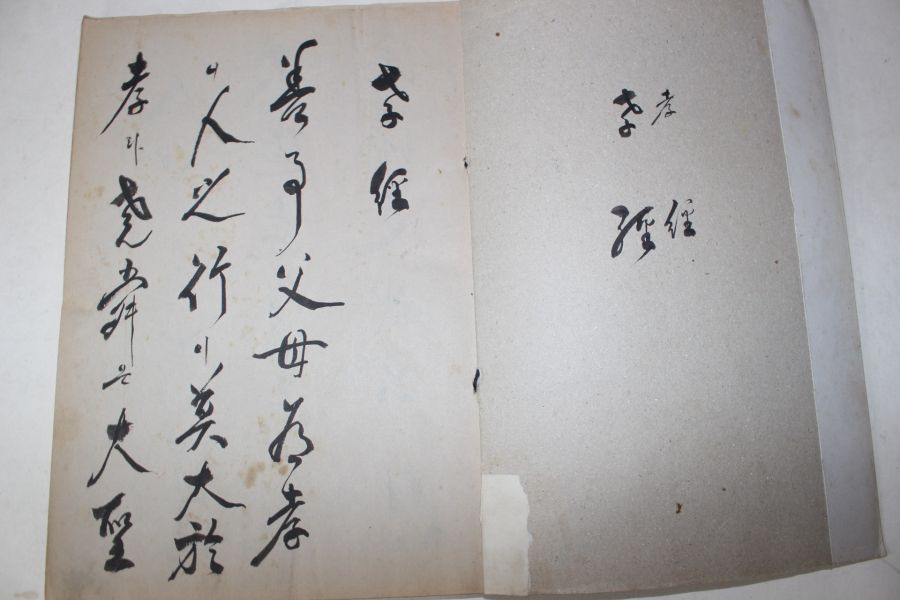 孝經
孝經
孝經
善事父母爲孝
니人之行이莫大於
孝라堯舜은大聖